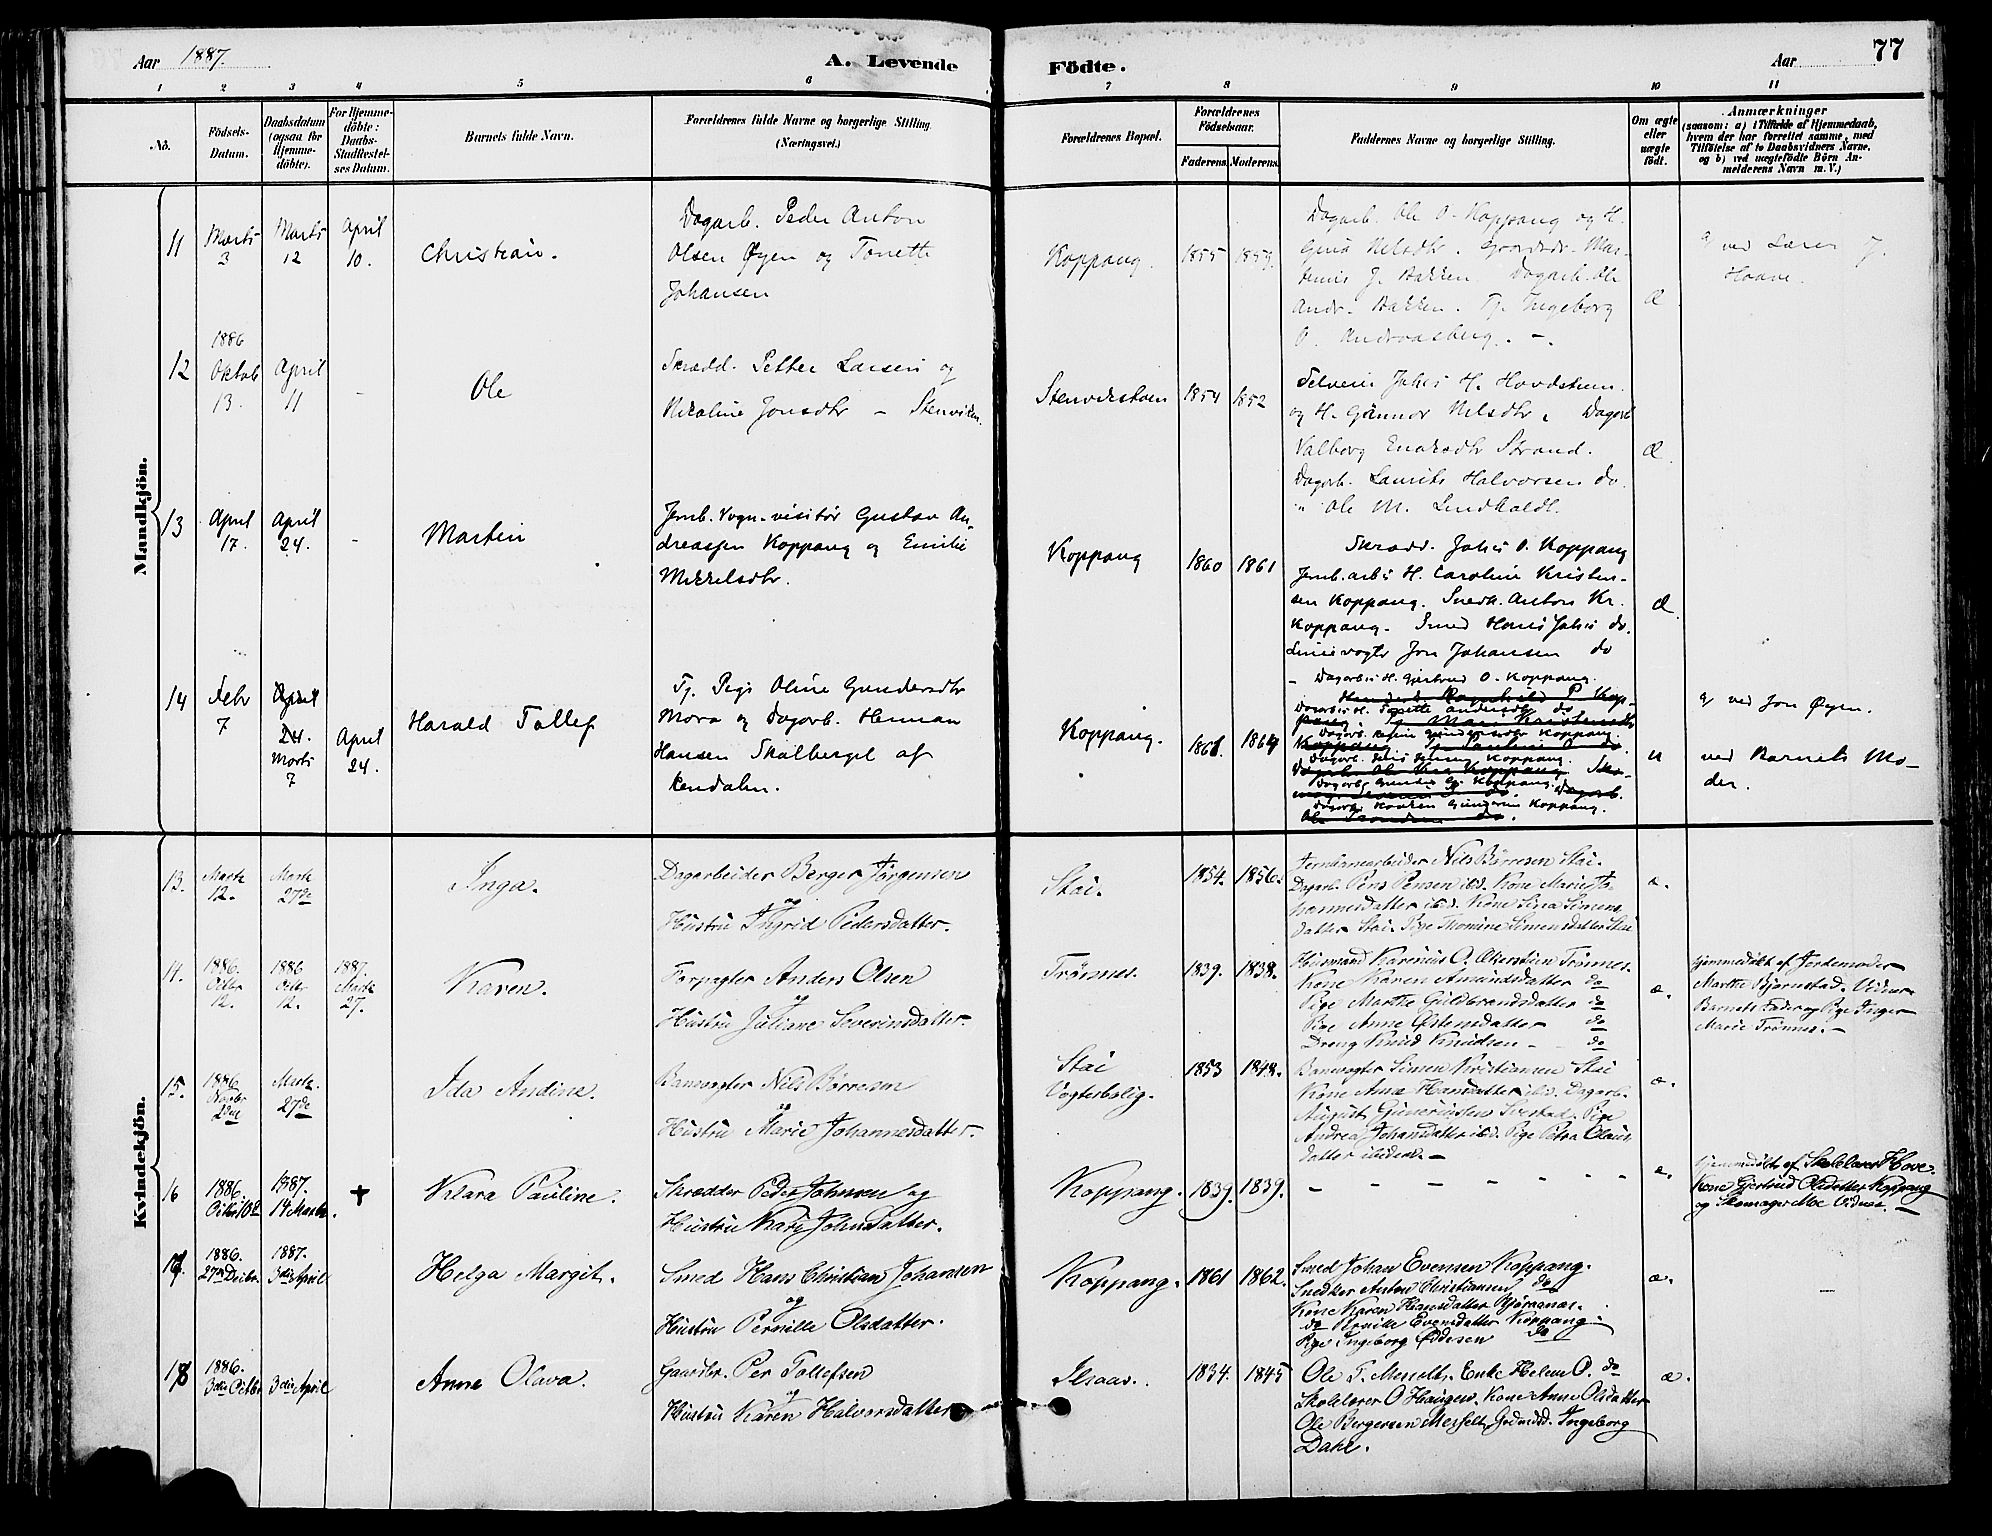 Aar 1887.
A. Levende Födte.
Aar 77
1 2 3 4 5 6 7 8 9 10 11
No.
Födsels-Datum.
Daabsdatum (ogsaa for Hjemmedöbte).
For Hjemmedöbte: Daabs-Stadfæstelses Datum.
Barnets fulde Navn.
Forældrenes fulde Navne og borgerlige Stilling (Næringsvei.)
Forældrenes Bopæl.
Forældrenes Födselsaar.
Faderens. Moderens.
Faddernes Navne og borgerlige Stilling.
Om ægte eller uægte födt.
Anmærkninger
(saasom: a) i Tilfælde af Hjemmedaab,
hvem der har forrettet samme, med
Tilföielse af to Daabsvidners Navne,
og b) ved uægtefödte Börn An-
melderens Navn m. V.)
Mandkjön.
11 Marts 3 Marts 12 April 10. Christian.
Dagarb. Peder Anton
Olsen Øyen og Tonette
Johansen
Koppang. 1855 1859.
Dagarb. Ole O. Koppang og H.
Nelsdtr.
J. Bakken. Dagarb. Ole
Andr. Bakken. Tj. Ingeborg
O.
æ
ved Lærer J.
Haave.
12 1886 Oktob 13. April 11 - Ole
Skrædd. Petter Larsen og
Nikoline Jonsdtr - Stenviken.
1854 1852
Johs H. Hovdstuen
og H. Gunnor Nelsdtr, Dagarb
Valborg Strand.
Dagarb. Laurits Halvorsen do
" Ole M.
æ
13 April 17. April 24. - Martin
Jernb. Vogn-visitør Gustav An-
dreassen Koppang og Emilie
Mikkelsdtr.
Koppang 1860 1861
Skrædd. Johs O. Koppang
Jernb.arb: H. Caroline Kristen-
sen Koppang. Snedk. Anton Kr.
Koppang. Smed Hans Johs do.
Linievogter Jon Johansen do
æ
14 Febr 7 April 24. Marts 7 April 24. Harald Tollef
Tj. Pige Oline Gundersdtr
Mora og Dagarb. Herman
Hansen Skalberget af
Rendalen.
Koppang. 1861. 1864
Dagarb: H. Gjertrud O. Koppang.
Dagarb: H. Tonette Andersdtr do
Koppang.
Koppang.
Koppang.
Koppang.
u
ved Jon Øyen.
ved Barnets Mo-
der.
Kvindekjön.
13. Marts 12. Marts 27de Inga.
Dagarbeider Berger Jørgensen
og
Hustru Ingrid Pedersdatter.
Stai. 1854. 1856.
Jernbanearbeider Nils Børresen Stai.
Dagarb. Pens Pensen ibd. Kone Marie Jo-
hannesdatter ibd. Kone Sina Simens-
datter Stai. Pige Thomine Simensdatter Stai
æ.
14. 1886. Octbr 12. 1886 Octbr 12. 1887. Marts 27. Karen.
Forpagter Anders Olsen
og
Hustru Juliane Severinsdatter.
Trønnes. 1839. 1838.
Husmand Karenus O. Trønnes.
Kone Karen Amundsdatter do
Pige Marthe Guldbrandsdatter do
Pige Anne Østensdatter do
Dreng Knud Knudsen - do
æ.
Hjemmedøbt af Jordemoder
Marthe Bjørnstad. Vidner
Barnets Fader og Pige Inger
Marie Trønnes. -
15. 1886 2den Marts. 27de Ida Andine.
Banevogter Nils Børresen
og
Hustru Marie Johannesdatter.
Stai
Vogterbolig. 1853 1848.
Banevogter Simen Kristiansen Stai
Kone Anne Hansdatter ibd. Dagarb.
August Gunerinssen Pige
Andrea Johansdatter ibd. Pige Petra Olaus-
datter ibidem. -
æ.
16 1886. Octbr 10de 1887. 14 Marts. † Klara Pauline.
Skrædder Peder Johnsen og
Hustru Kari Johnsdatter.
Koppang. 1839. 1839. - - - - - - æ.
Hjemmedøbt af Skolelærer Hove.
Kone Gjertrud Olsdatter Koppang
og Skomager Moe Vidner. -
17. 1886. 27de Decbr. 1887. 3die April Helga Margit.
Smed Hans Christian Johansen
og
Hustru Pernille Olsdatter.
Koppang. 1861 1862.
Smed Johan Evensen Koppang.
Snedker Anton Christiansen do
Kone Karen Hansdatter Bjøraanæs.
do Pernille Evensdatter Koppang.
Pige Ingeborg do
æ.
18 1886. 3die Octbr 3die April Anne Olava.
Gaardbr. Per Tollefsen
og
Hustru Karen Halvorsdatter
1834. 1845
Ole T. Messelt, Enke Helene P. do
Skolelærer O Haugen. Kone Anne Olsdatter
Ole Bergersen Messelt, Ingeborg
Dahl.
æ.